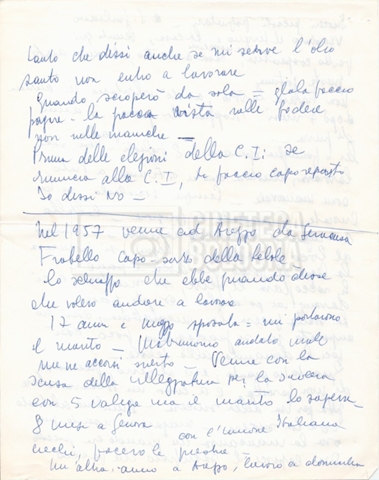 tanto che dissi anche se mi serve l'olio
santo non entro a lavorare
Quando scioperò da sola = gliela faccio
pagare - la vista nelle federe
non nelle maniche -
Prima delle elezioni della C.I: se
rinuncia alla C.I, la faccio caporeparto
Io dissi No -
Nel 1957 venne ad Arezzo da
Fratello capo-sarto della Lebole
lo schiaffo che ebbe quando disse
che volevo andare a lavoro
17 anni e mezzo sposata = mi portarono
il marito - Matrimonio andato male
me ne accorsi subito - Venne con la
scusa della villeggiatura per la suocera
con 5 valige ma il marito lo sapeva
8 mesi a Genova
con l'unione Italiana
ciechi, facevo le
Un altro anno a Arezzo, lavoro a domicilio